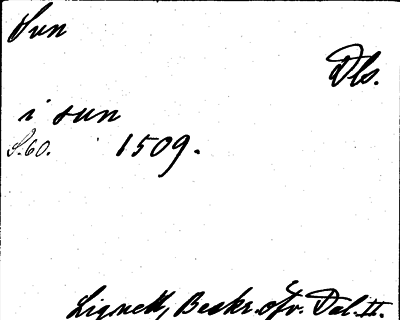 Sun
Dls.
i sun
S.60. 1509.
Lignell, Beskr. öfv. Dal. II.